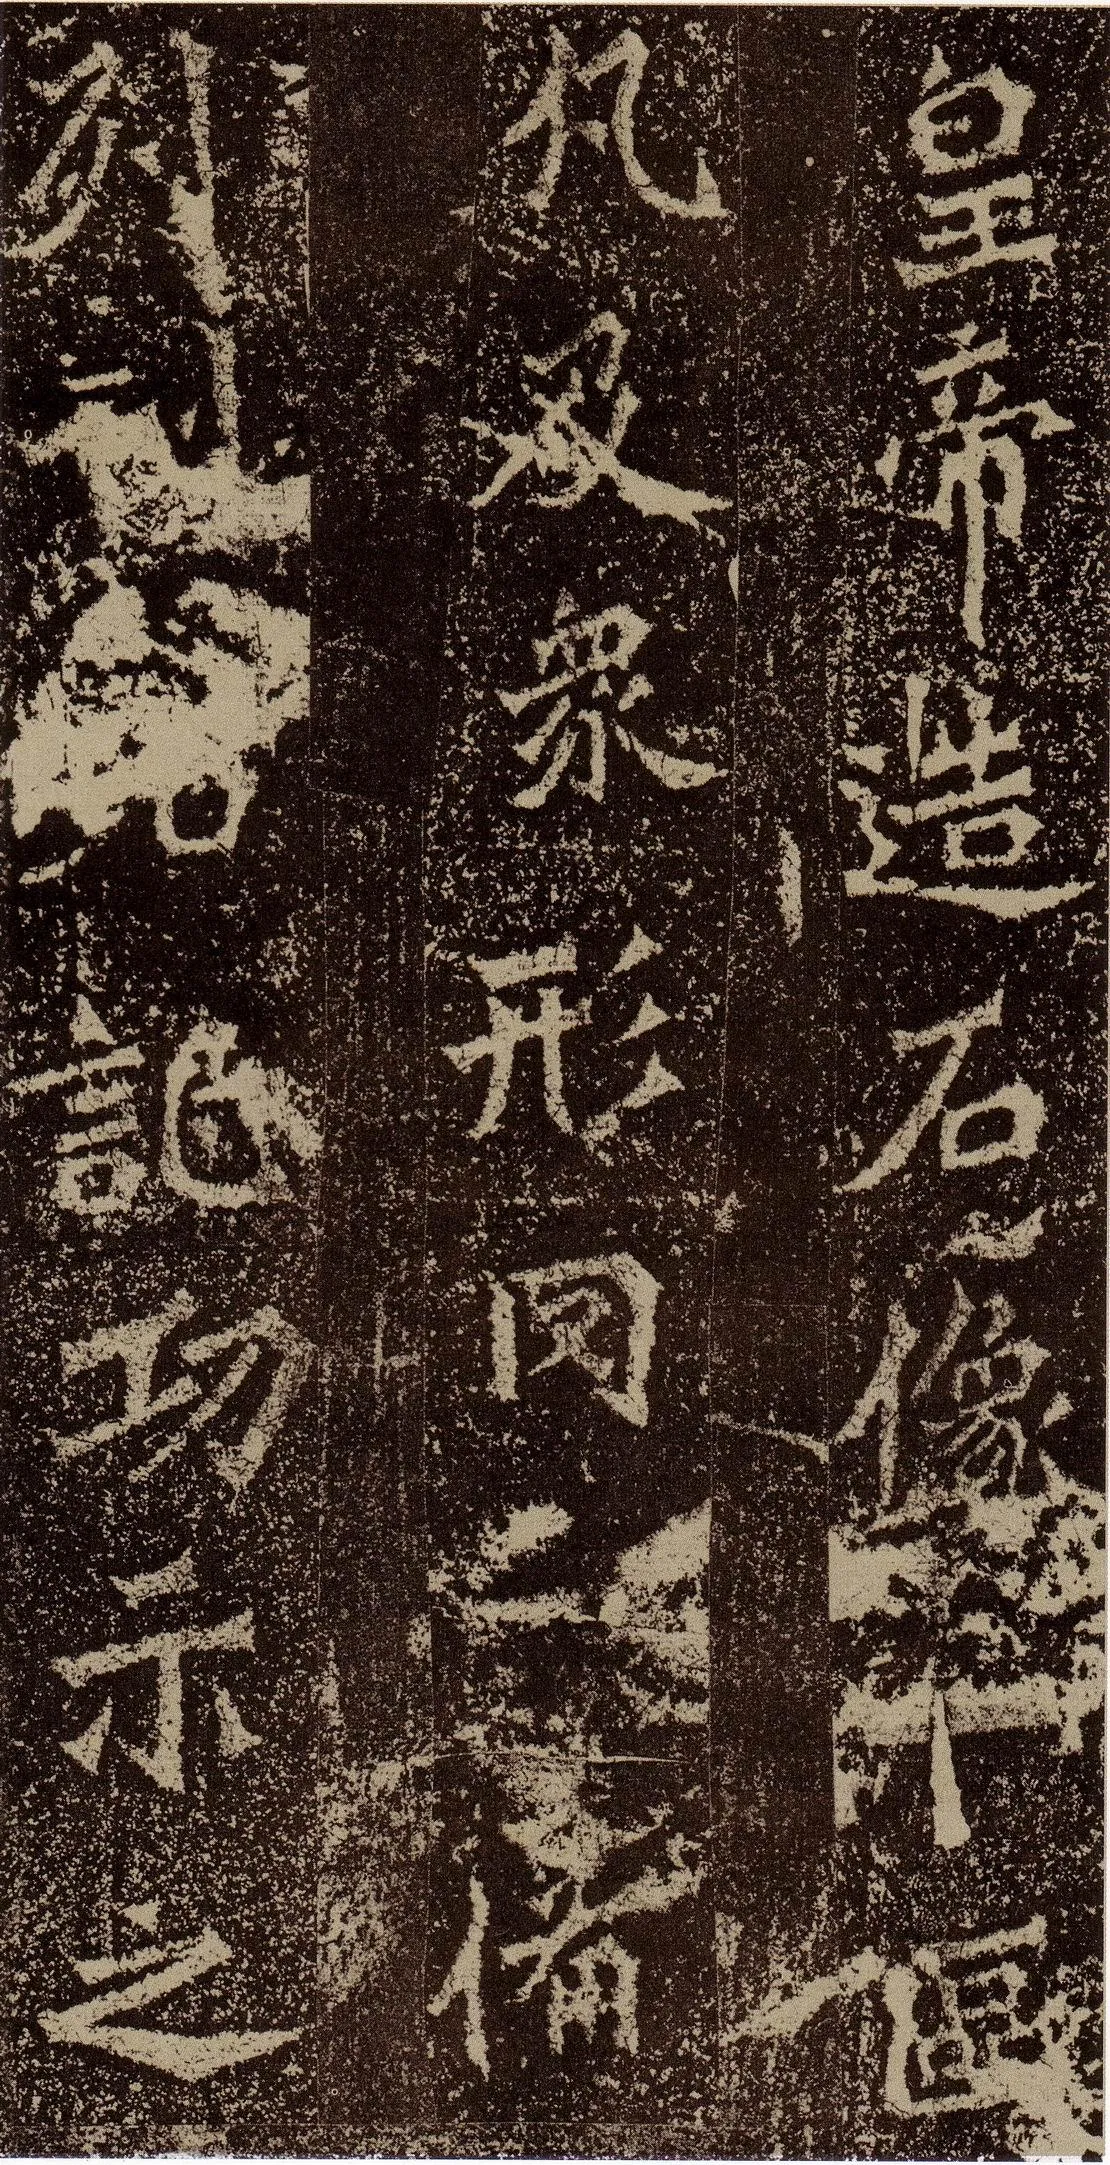 皇帝造石像區
凡及衆形罔不備
列石記功示之